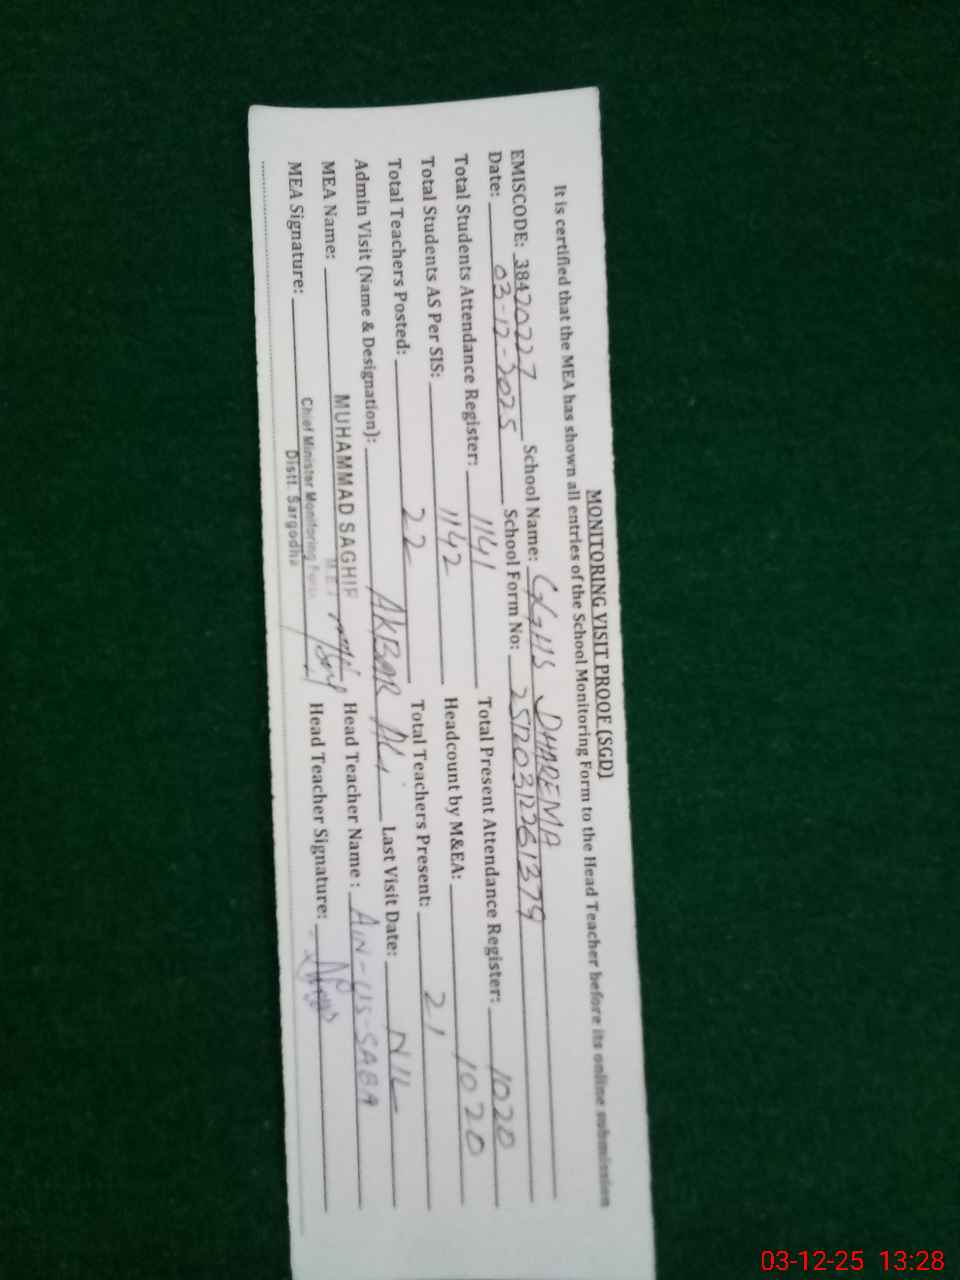 MONITORING VISIT PROOF (SGD)
It is certified that the MEA has shown all entries of the School Monitoring Form to the Head Teacher before its online submission
EMISCODE: 38420227 School Name: GGHS DHAREMA
Date: 03-12-2025 School Form No: 25120312261379
Total Students Attendance Register: 1141 Total Present Attendance Register: 1020
Total Students AS Per SIS: 1142 Headcount by M&EA: 1020
Total Teachers Posted: 22 Total Teachers Present: 21
Admin Visit (Name & Designation): AKBAR ALI Last Visit Date: NIL
MEA Name: MUHAMMAD SAGHIR Head Teacher Name : AIN-US-SABA
MEA Signature: Chief Minister Monitoring Force Head Teacher Signature:
Distt. Sargodha
03-12-25 13:28